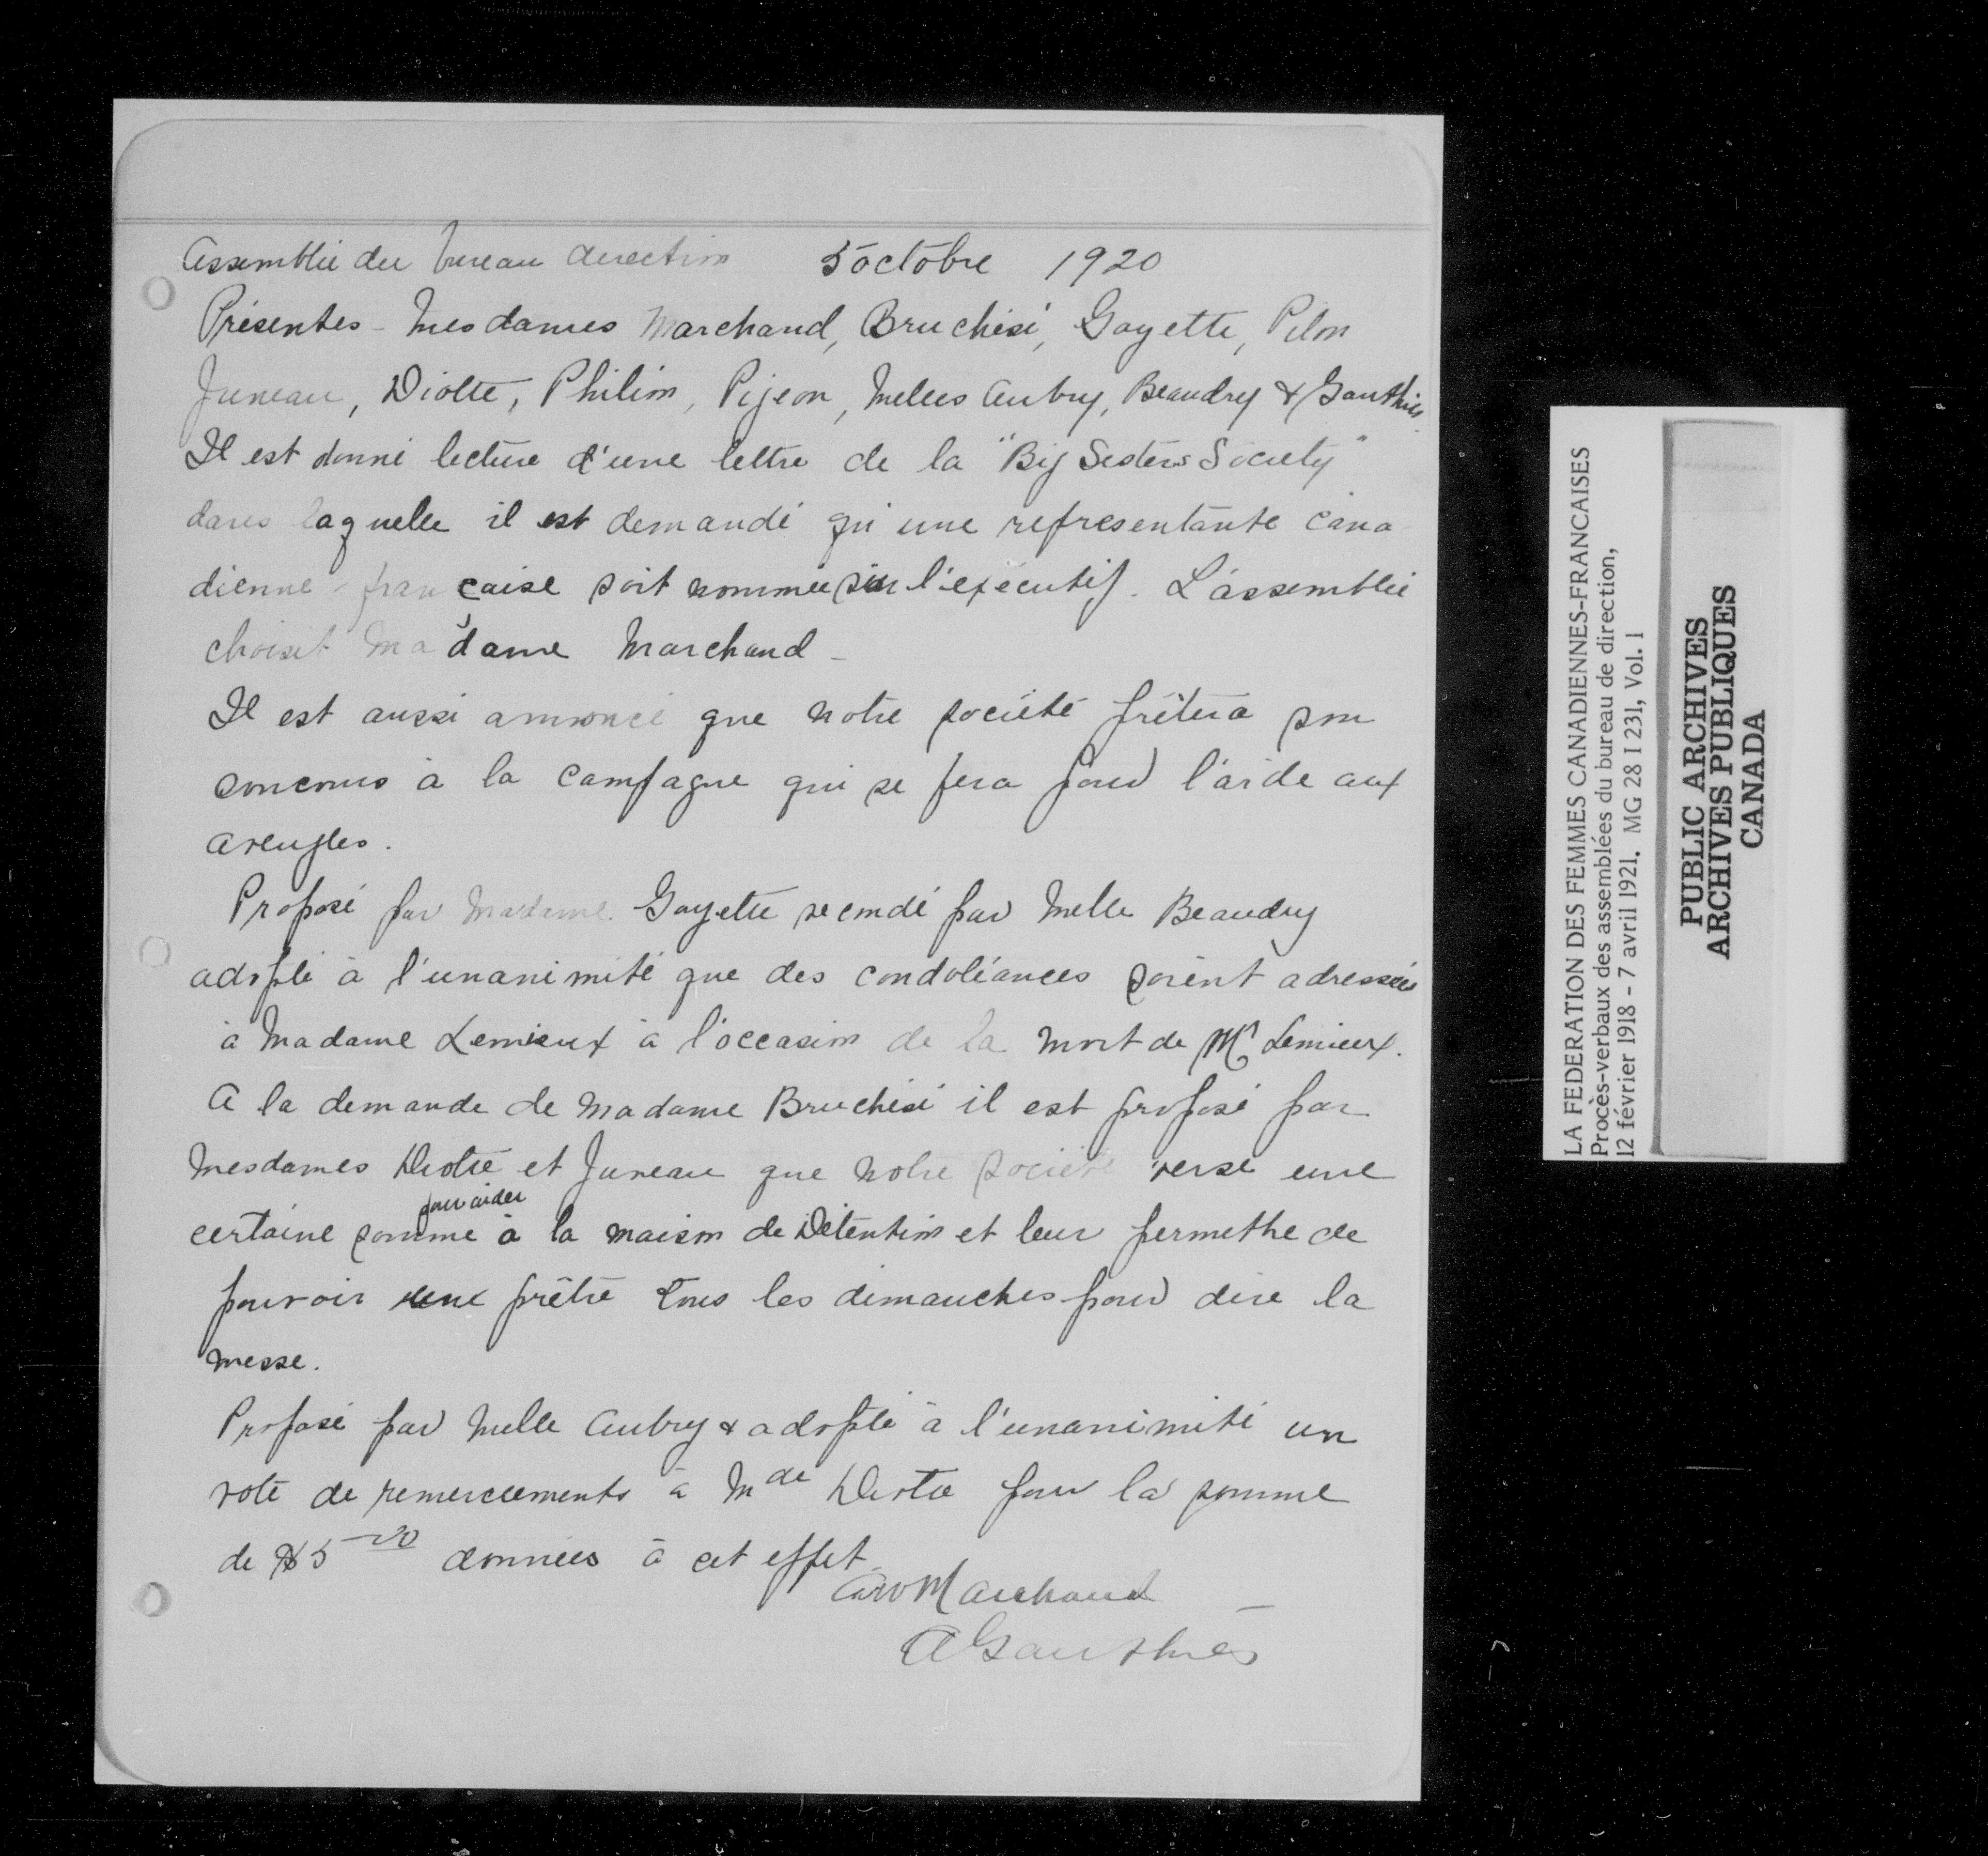 Assemblée du bureau direction 5 octobre 1920
Présentes - Mesdames Marchand, Bruchési, Goyette, Pilon
Juneau, Diotte, Philion, Pigeon, Melles Aubry, Beaudry & Gauthier.
Il est donné lecture d'une lettre de la "Big Sisters Society"
dans laquelle il est demandé qu'une representante cana
dienne-française soit nommée sur l'exécutif. L'assemblée
choisit Madame Marchand -
Il est aussi annoncé que notre société prêtera son
concours à la campagne qui se fera pour l'aide aux
aveugles.
Proposé par Madame Goyette secondé par Melle Beaudry
adopté à l'unanimité que des condoléances soient adressées
à Madame Lemieux à l'occasion de la mort de Mr Lemieux.
A la demande de Madame Bruchési il est proposé par
Mesdames Diotte et Juneau que notre société verse une
certaine somme pour aider à la maison de Détention et leur permettre de
pouvoir prêtre tous les dimanches pour dire la
messe.
Proposé par Melle Aubry & adopté à l'unanimité un
vote de remerciements à Mde Diotte pour la somme
de $5 données à cet effet
Marchand
A Gauthier
LA FEDERATION DES FEMMES CANADIENNES-FRANCAISES
Procès-verbaux des assemblées du bureau de direction,
12 février 1918 - 7 avril 1921. MG 28 I 231, Vol. 1
PUBLIC ARCHIVES
ARCHIVES PUBLIQUES
CANADA